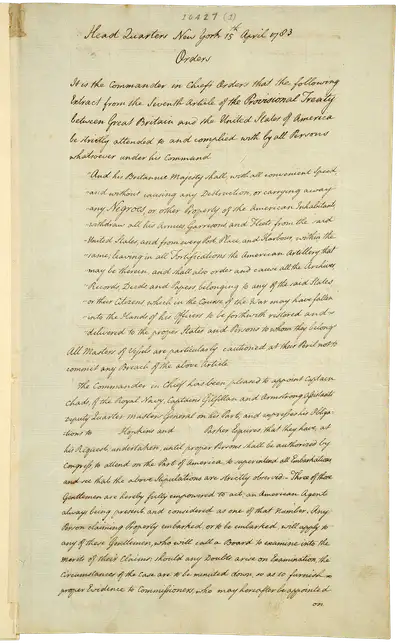 20427 (1)
Head Quarters New York 15th April 1783
Orders
It is the Commander in Chiefs Orders that the following
Extract from the Seventh Article of the Provisional Treaty
between Great Britain and the United States of America
be strictly attended to and complied with by all Persons
whatsoever under his Command
And his Britannic Majesty shall, with all convenient Speed,
and without causing any Destruction, or carrying away
any Negroes, or other Property of the American Inhabitants
withdraw all his Armies Garrisons and Fleets from the said
United States, and from every Post, Place, and Harbour, within the
same; leaving in all Fortifications the American Artillery that
may be therein, and shall also order and cause all the Archives
Records, Deeds and Papers belonging to any of the said States
or their Citizens which in the Course of the War may have fallen
into the Hands of his Officers to be forthwith restored and
delivered to the proper States and Persons to whom they belong
All Masters of Vessels are particularly cautioned at their Peril not to
commit any Breach of the above Article
The Commander in Chief has been pleased to appoint Captain
Chads, of the Royal Navy, Captains Gilfillan and Armstrong Assistants
Deputy Quarter Master General on his Part, and expresses his Obliga
tions to Hopkins and Parker Esquires, that they have, at
his Request, undertaken, until proper Persons shall be authorized by
Congress to attend on the Part of America, to superintend all Embarkations
and see that the above Stipulations are strictly observed. Three of these
Gentlemen are hereby fully empowered to act an American Agents
always being present and considered as one of that Number. Any
Person claiming Property embarked, or to be embarked, will apply to
any of these Gentlemen, who will call a Board to examine into the
merits of their Claims; should any Doubts arise on Examination, the
Circumstances of the Case are to be minuted down so as to furnish
proper Evidence to Commissioners, who may hereafter be appointed
on